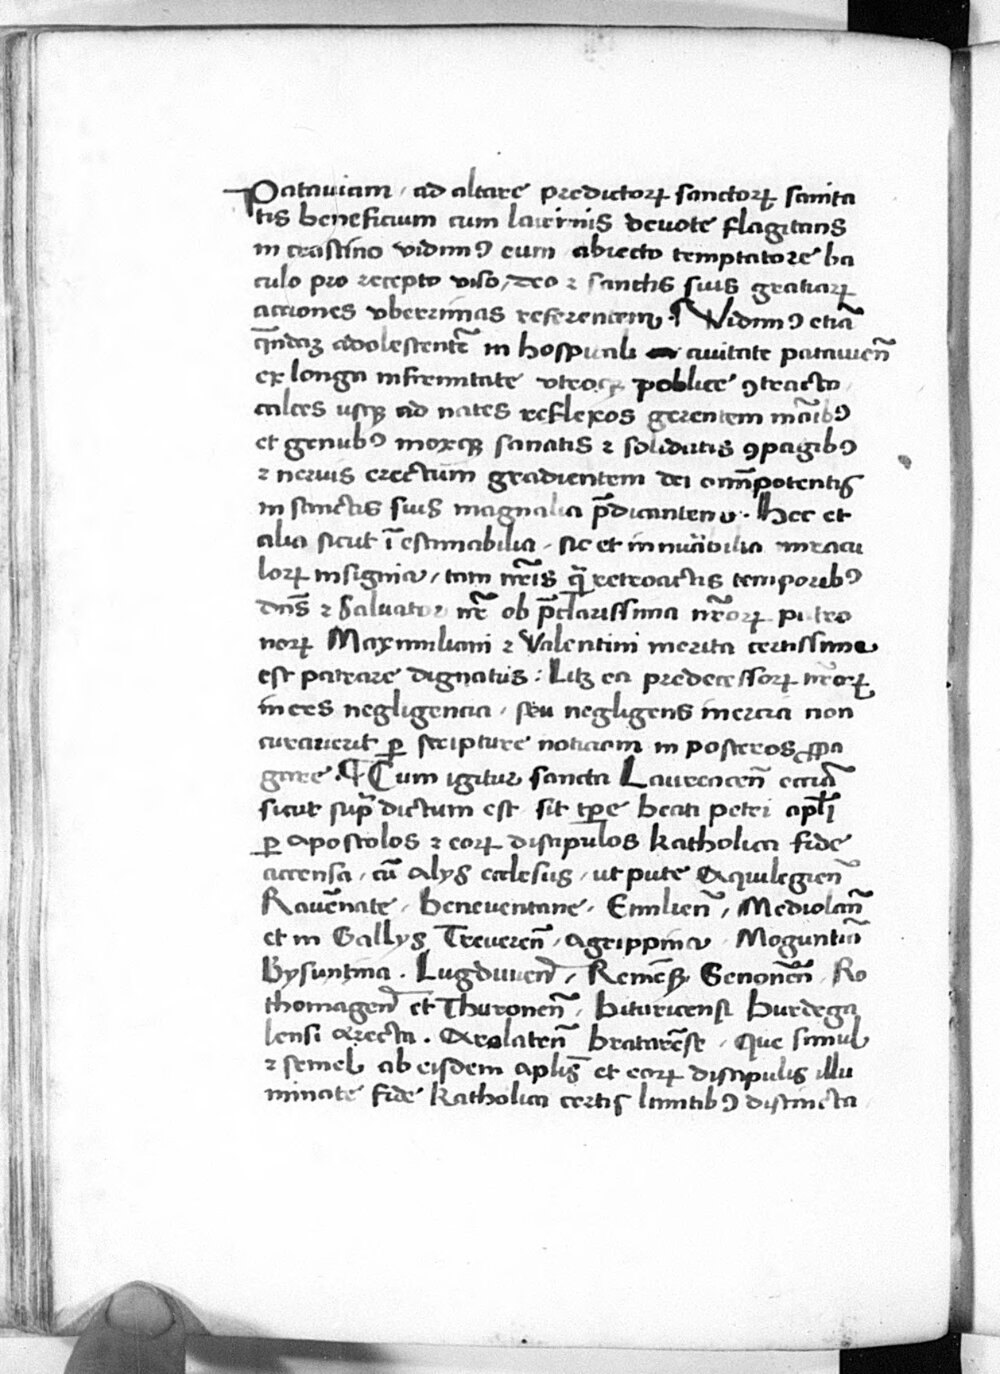 Patauiam / ad altare predictorꝝ sanctorꝝ sanita
tis beneficium cum lacrimis deuote flagitans
in crastino vidimꝰ eum abiecto temptatore ba
culo pro recepto viso / deo ⁊ sanctis suis gratiarꝝ
acciones vberrimas referentem · Vidimꝰ etiā
q̄ndaꝫ adolescentē in hospitali ciuitate patauien̄
ex longa infirmitate vtroqꝫ poblice ꝯtracto
calces usqꝫ ad nates reflexos gerentem māibꝰ
et genubꝰ moxqꝫ sanatis ⁊ solidatis ꝯpagibꝰ
⁊ neruis erectum gradientem dei om̄ipotentis
in sanctis suis magnalia p̄dicantem · Hec et
alia sicut īestimabilia / sic et innūabilia miracu
lorꝝ insignia / tam nr̄is q̄ retroactis temporibꝰ
dn̄s ⁊ Saluator nr̄ ob p̄clarissima nr̄orꝝ patro
norꝝ Maximiliani ⁊ Valentini merita certissime
est patrare dignatus : Licꝫ ea predecessorꝝ nr̄orꝝ
inces negligencia / seu negligens inercia non
curauerit ꝑ scripture noticiam in posteros ꝓpa
gare · ¶ Cum igitur sancta Laureacen̄ eccīa
sicut sup̄dictum est sit tꝑe beati petri apl̄i
ꝑ apostolos ⁊ eorꝝ discipulos katholica fide
accensa / cū alys ecclesiis / ut pute Aquilegien̄
Rauēnate / Beneuentane / Emilien̄ / Mediolan̄
et in Gallys Treueren̄ / Agrippina / Moguntin̄
Bysuntina · Lugduuen̄ / Remēsꝫ Senonēn̄ / Ro
thomagen̄ et Thuronen̄ / bituricensi Burdega
lensi erecta · Arelaten̄ bratarēse / Que simul
⁊ semel ab eisdem aplis̄ et eorꝝ discipulis illu
minate fide katholica certis limitibꝰ distincta